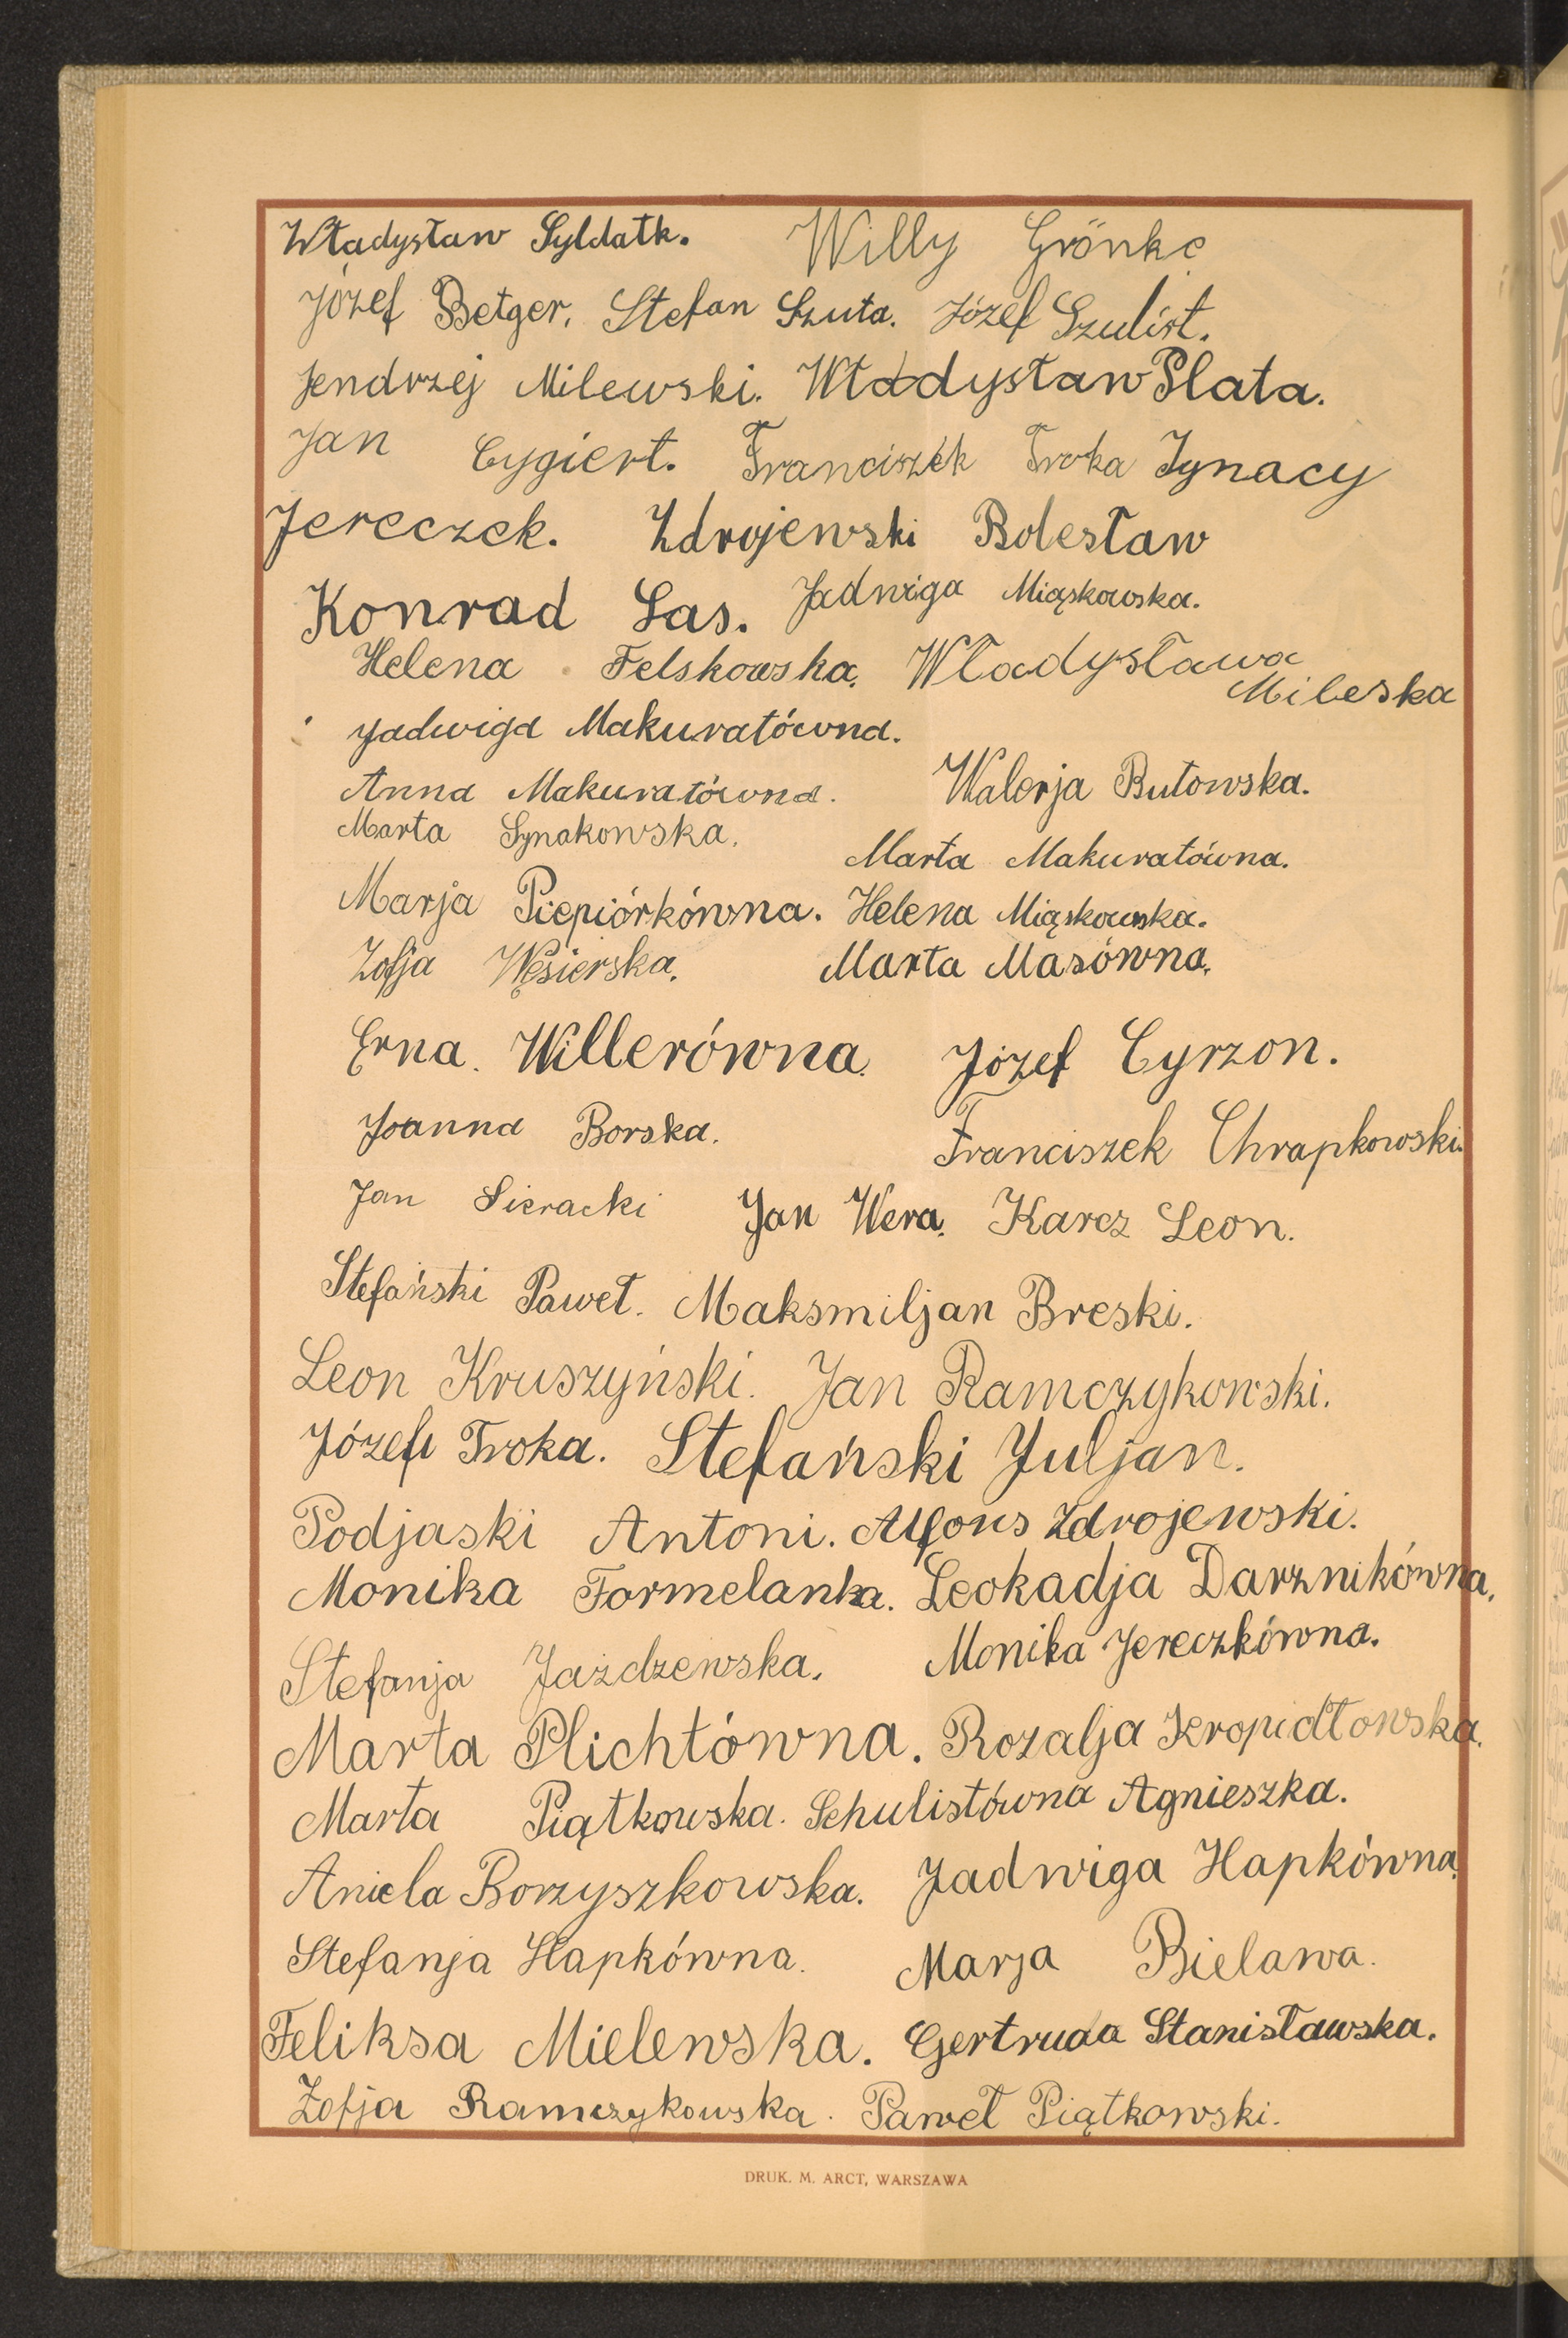 Władysław Syldatk. Willy Grönke
Józef Betger. Stefan Szuta. Józef Szulist.
Jendrzej Milewski. Władysław Plata.
Jan Cygiert. Franciszek Troka Ignacy
Jereczek. Zdrojewski Bolesław
Konrad Las. Jadwiga Miąskowska.
Helena Felskowska. Władysława
Mileska
Jadwiga Makuratówna.
Anna Makuratówna. Walerja Butowska.
Marta Synakowska. Marta Makuratówna.
Marja Piepiórkówna. Helena Miąskowska.
Zofja Węsierska. Marta Masówna.
Erna Willerówna. Józef Cyrzon.
Joanna Borska. Franciszek Chrapkowski.
Jan Sieracki Jan Wera. Karcz Leon.
Stefański Paweł. Maksmiljan Breski.
Leon Kruszyński. Jan Ramczykowski.
Józef Troka. Stefański Juljan.
Podjaski Antoni. Alfons Zdrojewski.
Monika Formelanka. Leokadja Darznikówna.
Stefanja Jażdzewska. Monika Jereczkówna.
Marta Plichtówna. Rozalja Kropidłowska.
Marta Piątkowska. Schulistówna Agnieszka.
Aniela Borzyszkowska. Jadwiga Hapkówna.
Stefanja Hapkówna. Marja Bielawa.
Feliksa Mielewska. Gertruda Stanisławska.
Zofja Ramczykowska. Paweł Piątkowski.
DRUK. M. ARCT, WARSZAWA